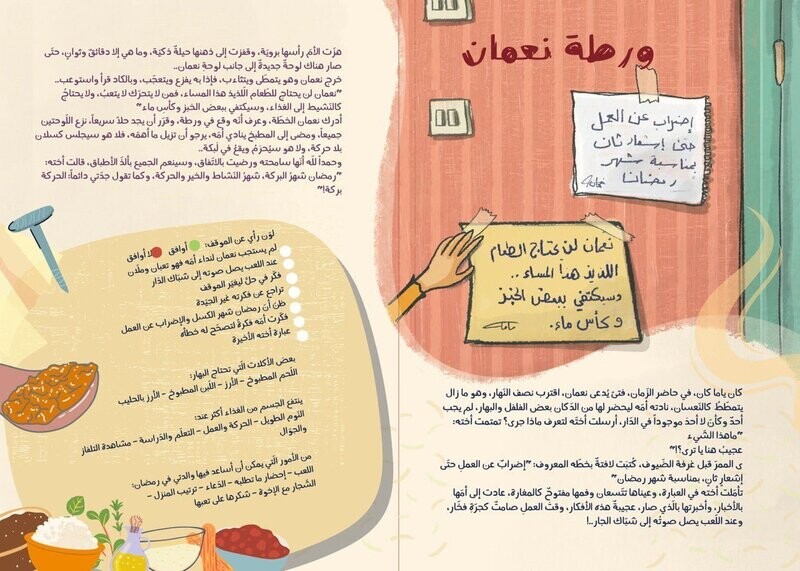 ورطة نعمان
إضراب عن العمل
حتى إشعار ثان
بمناسبة شهر
رمضان
نعمان
نعمان لن يحتاج الطعام
اللذيذ هذا المساء..
وسيكتفي ببعض الخبز
وكأس ماء.
ماما
كان ياما كان، في حاضر الزّمان، فتىً يُدعى نعمان، اقترب نصف النّهار، وهو ما زال
يتمطّطُ كالنّعسان، نادته أمّه ليحضر لها من الدّكان بعض الفلفل والبهار، لم يجب
أحدٌ وكأنّ لا أحدَ موجوداً في الدّار، أرسلت أخته لتعرف ماذا جرى؟ تمتمت أخته:
"ماهذا الشّيء
عجيبٌ هنا يا ترى؟!"
ى الممرّ قبل غرفة الضّيوف، كُتبَت لافتةٌ بخطّه المعروف: "إضرابٌ عن العملِ حتّى
إشعارٍ ثانٍ، بمناسبة شهر رمضان"
تأمّلت أخته في العبارة، وعيناها تتّسعان وفمها مفتوحٌ كالمغارة، عادت إلى أمّها
بالأخبار، وأخبرتها بالّذي صار، عجيبةٌ هذه الأفكار، وقتُ العملِ صامتٌ كجرّةِ فخّار،
وعند اللّعب يصل صوتُه إلى شبّاك الجار..!
هزّت الأمّ رأسها برويّة، وقفزت إلى ذهنها حيلةٌ ذكيّة، وما هي إلا دقائقُ وثوانٍ، حتّى
صار هناك لوحةٌ جديدةٌ إلى جانب لوحةِ نعمان..
خرج نعمان وهو يتمطّى ويتثاءب، فإذا به يفزع ويتعجّب، وبالكاد قرأ واستوعب..
"نعمان لن يحتاج للطّعام اللّذيذ هذا المساء، فمن لا يتحرّك لا يتعبُ، ولا يحتاجُ
كالنّشيط إلى الغذاء، وسيكتفي ببعض الخبز وكأس ماء"
أدرك نعمان الخطّة، وعرف أنّه وقع في ورطة، وقرّر أن يجد حلّاً سريعاً، نزع اللّوحتين
جميعاً، ومضى إلى المطبخ ينادي أمّه، يرجو أن تزيل ما أهمّه، فلا هو سيجلس كسلان
بلا حركة، ولا هو سيُحرَمُ ويقعُ في لَبكة..
وحمداً للّه أنّها سامحته ورضيت بالاتّفاق، وسينعم الجميع بألذّ الأطباق، قالت أخته:
"رمضان شهرُ البركة، شهرُ النّشاط والخير والحركة، وكما تقول جدّتي دائماً: الحركة
بركة!"
لوّن رأي عن الموقف: أوافق لا أوافق
لم يستجب نعمان لنداء أمّه فهو تعبان وملّان
عند اللعب يصل صوته إلى شبّاك الدّار
فكّر في حلّ ليغيّر الموقف
تراجع عن فكرته غير الجيّدة
ظنّ أنّ رمضان شهر الكسل والإضراب عن العمل
فكّرت أمّه فكرةً لتصحّح له خطأه
عبارة أخته الأخيرة
بعض الأكلات الّتي تحتاج البهار:
اللّحم المطبوخ - الأرز - اللّبن المطبوخ - الأرز بالحليب
ينتفع الجسم من الغذاء أكثر عند:
النّوم الطويل - الحركة والعمل - التعلّم والدّراسة - مشاهدة التلفاز
والجوّال
من الأمور الّتي يمكن أن أساعد فيها والدتي في رمضان:
اللعب - إحضار ما تطلبه - الدّعاء - ترتيب المنزل -
الشّجار مع الإخوة - شكرها على تعبها